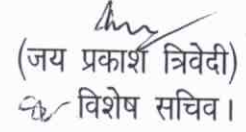 (जय प्रकाश त्रिवेदी)
विशेष सचिव।